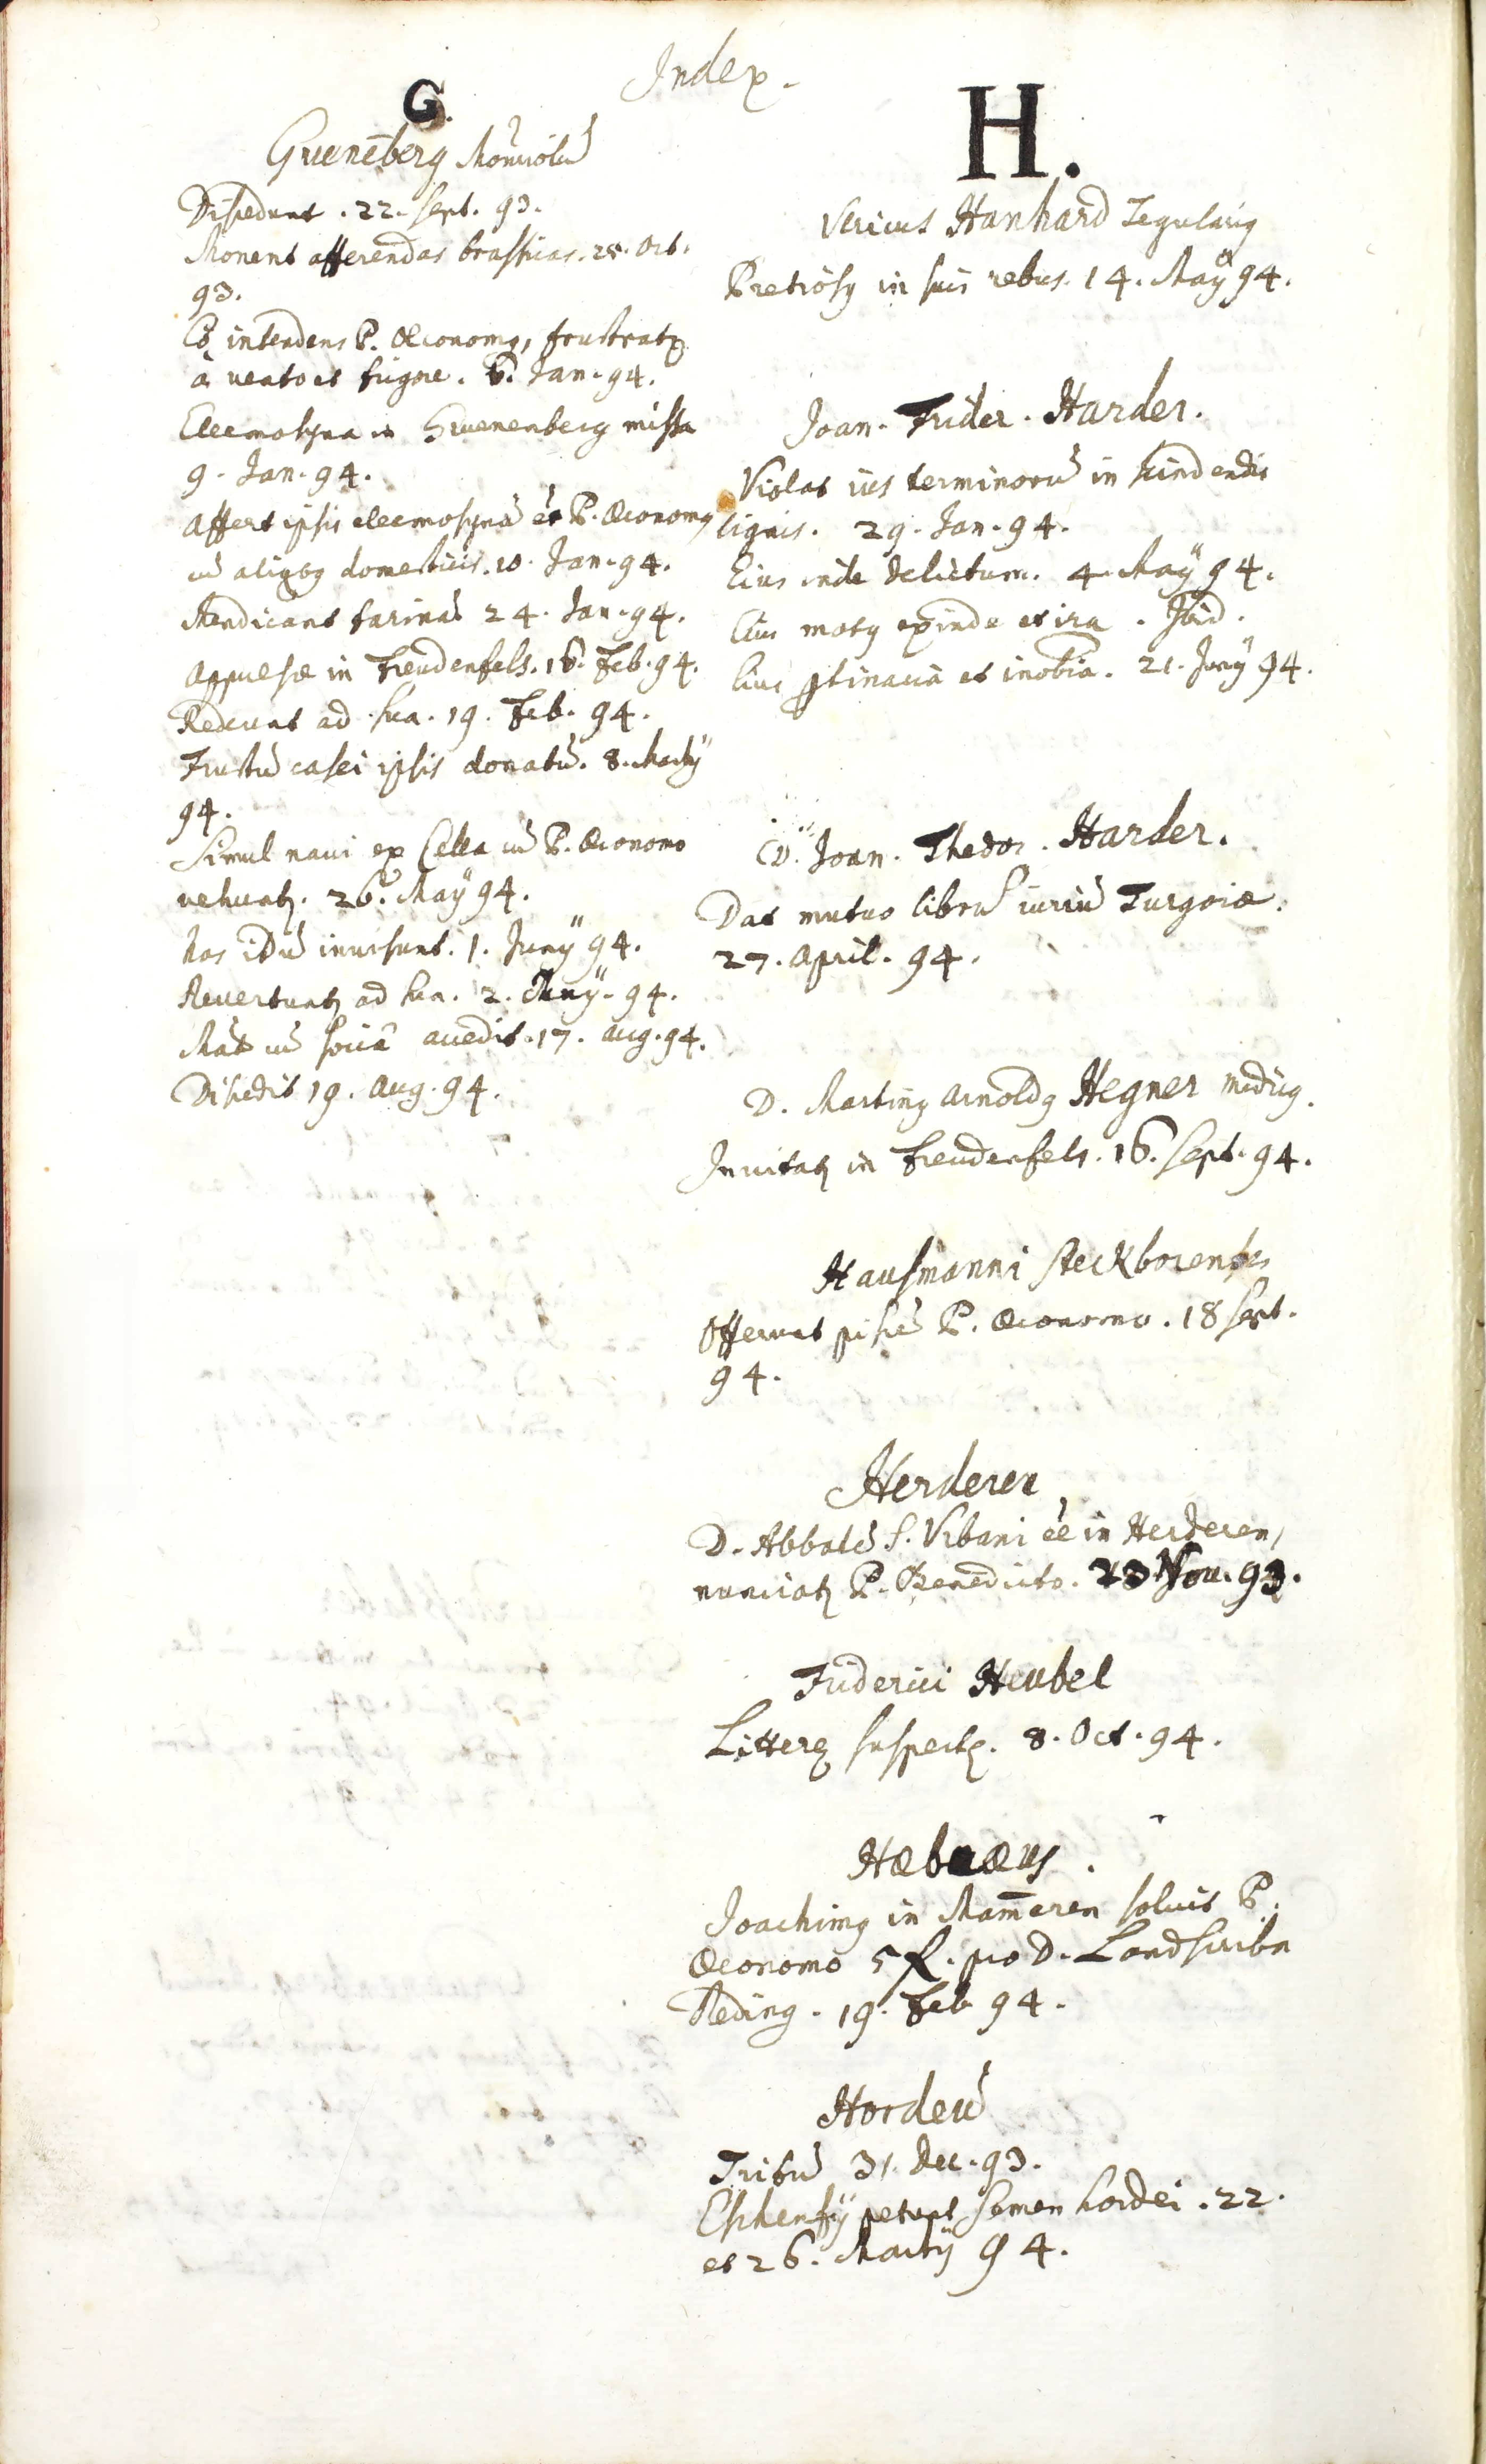 Index.
G.
Gruenēberg Monialiū
Discedunt. 22. Sept. 93.
Monent afferendas brassicas. 28. Oct.
93.
Eò intendens P. Œconomꝰ, frustratꝛ
à vento et frigore. 6. Jan. 94.
Eleemosyna in Gruenenberg missa
9. Jan. 94.
Affert ipsis eleemosynā et P. Œconomꝰ
cū aliqbꝰ domesticis. 10. Jan. 94.
Mendicant farinā 24. Jan. 94.
Appulsæ in Freudenfels. 16. Feb. 94.
Redeunt ad sua. 19. Feb. 94.
Frustū casei ipsis donatū. 8. Martÿ
94.
Simul navi ex Cella cū P. Œconomo
vehuntꝛ. 26. Maÿ 94.
nos invisunt. 1. Junÿ 94.
Revertuntꝛ ad sua. 2. Junÿ. 94.
Mat cū sociâ accedit. 17. Aug. 94.
Discedit 19. Aug. 94.
H.
Vericus Hanhard Tegulariꝰ
Pretiosꝰ in suis rebus. 14. Maÿ 94.
Joan. Frider. Harder.
Violat ius terminorū in scindendis
lignis. 29. Jan. 94.
Eius inde delictum. 4. Maÿ 94.
Eius motꝰ exinde et ira. Ibid.
Eius ꝑtinacia et inobīa. 21. Junÿ 94.
D. Joan. Thedor. Harder.
Dat mutuo librū iuriū Turgoiæ.
27. April. 94.
D. Martinꝰ Arnoldꝰ Hegner medicꝰ.
Invitatꝛ in Freudenfels. 16. Sept. 94.
Hausmanni Steckborenses
Offerunt piscē P. Œconomo. 18 Sept.
94.
Herderen
D. Abbatē S. Urbani eē in Herderen,
nunciatꝛ P. Benedicto. 23 Nov. 93.
Friderici Heubel
Litteræ suspectæ. 8. Oct. 94.
Hæbræus.
Joachimꝰ in Mam̄eren solvit P.
Œconomo 5 fl. pro D. Landscriba
Reding. 19. Feb 94.
Hordeū
Tritū 31. Dec. 93.
Eschensÿ petunt semen hordei. 22.
et 26. Martÿ 94.